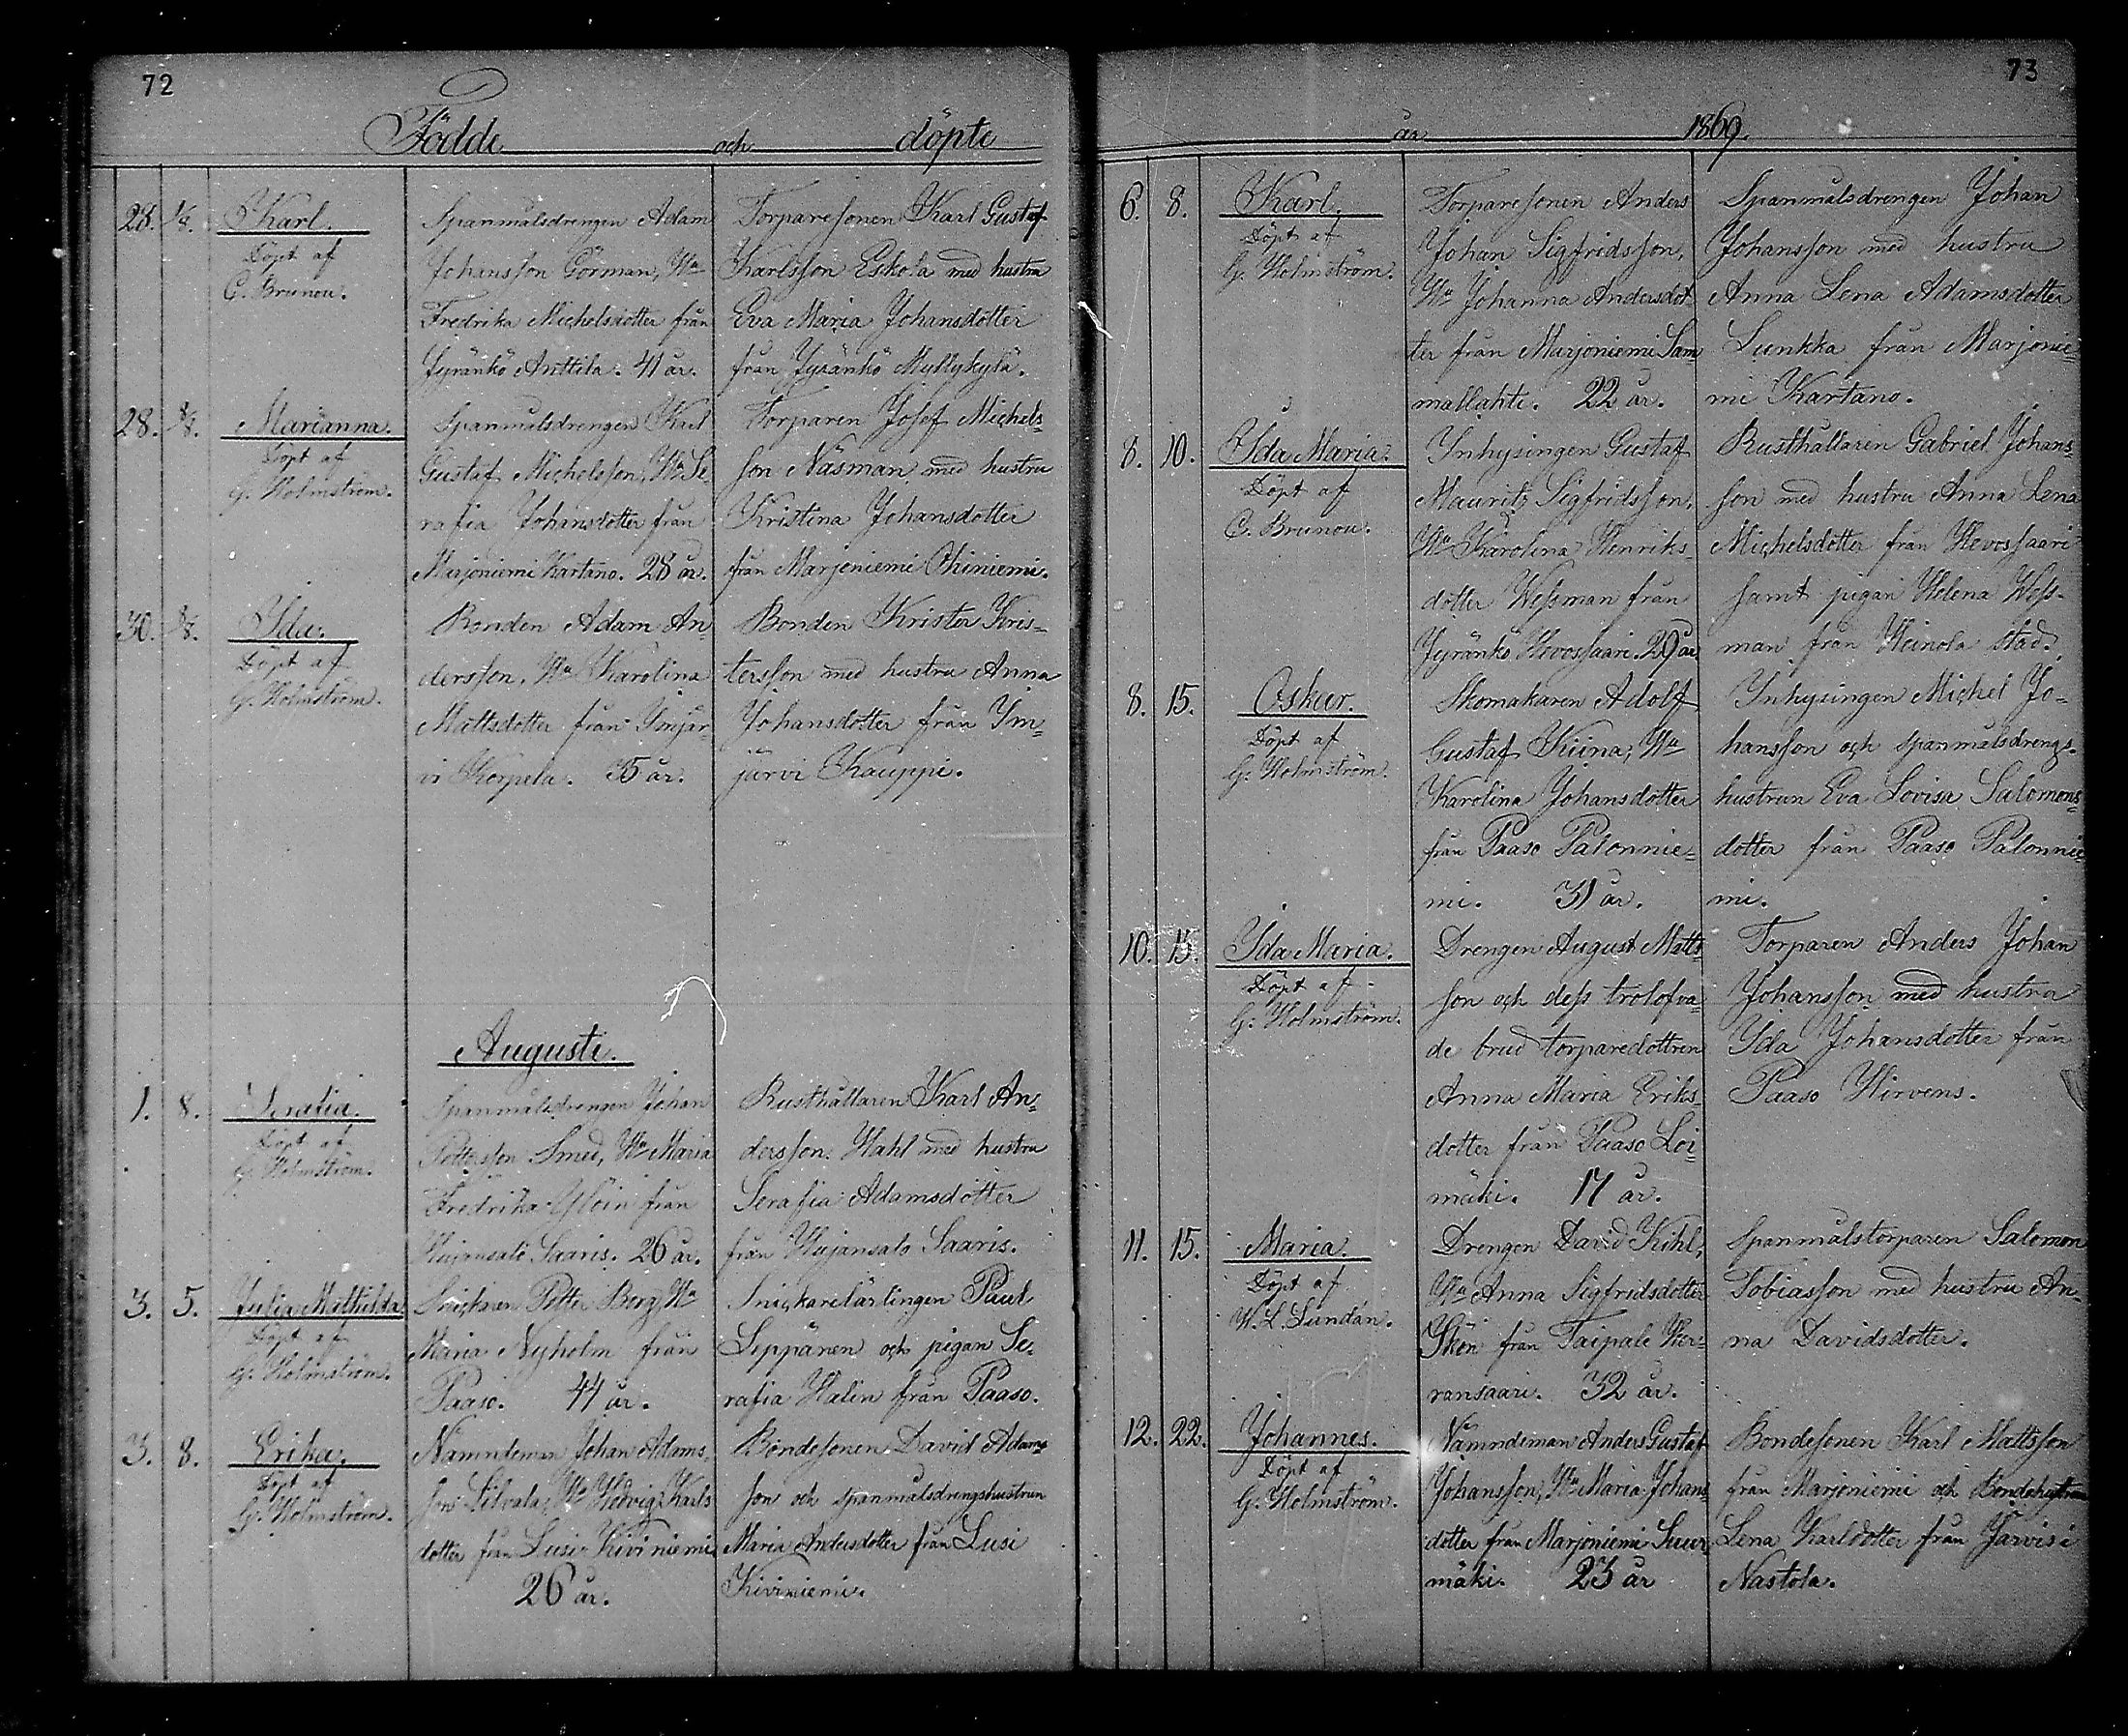 72
Födde och döpte
28. 1/8. Karl.
Döpt af
C. Brunou.
Spanmålsdrengen Adam
Johansson Görman, Hu
Fredrika Michelsdotter från
Jyränkö Anttila. 41 år.
Torparesonen Karl Gustaf
Karlsson Eskola med hustru
Eva Maria Johansdotter
från Jyränkö Myllykylä.
28. 8/8. Marianna.
Döpt af
G. Holmström.
Spanmålsdrengen Karl
Gustaf Michelsson, Hu Se
rafia Johansdotter från
Marjoniemi Kartano. 28 år.
Torparen Josef Michels-
son Näsman med hustru
Kristina Johansdotter
från Marjoniemi Ohiniemi.
30. 8/8. Ida.
Döpt af
G. Holmström.
Bonden Adam An-
dersson, Hu Karolina
Mattsdotter från Imjär-
vi Korpela. 35 år.
Bonden Krister Kris-
tersson med hustru Anna
Johansdotter från Im-
järvi Kauppi.
Augusti.
1. 8. Serafia.
Döpt af
G. Holmström.
Spanmålsdrengen Johan
Pettersson Smed, Hu Maria
Fredrika från
Hujansalo Saaris. 26 år.
Rusthållaren Karl An-
dersson Hahl med hustru
Serafia Adamsdotter
från Hujansalo Saaris.
3. 5. Julia Mathilda.
Döpt af
G. Holmström.
Snickaren Petter Berg, Hu
Maria Nyholm från
Paaso. 44 år.
Snickarelärlingen Paul
Seppänen och pigan Se-
rafia Halin från Paaso.
3. 8. Erika.
Döpt af
G. Holmström.
Nämndeman Johan Adams-
son Hu Hedvig Karls
dotter från Lusi Kiviniemi
26 år.
Bondesonen David Adams
son och spanmålsdrengshustrun
Maria Andersdotter från Lusi
Kiviniemi.
73
år 1869.
6. 8. Karl.
Döpt af
G. Holmström.
Torparesonen Anders
Johan Sigfridsson,
Hu Johanna Andersdot
ter från Marjoniemi Sam
mallahti. 22 år.
Spanmålsdrengen Johan
Johansson med hustru
Anna Lena Adamsdotter
Lunkka från Marjonie-
mi Kartano.
8. 10. Ida Maria.
Döpt af
C. Brunou.
Inhysingen Gustaf
Mauritz Sigfridsson,
Hu Karolina Henriks
dotter Wessman från
Jyränkö Hevossaari. 29 år
Rusthållaren Gabriel Johans-
son med hustru Anna Lena
Michelsdotter från Hevossaari
samt pigan Helena Wess-
man från Heinola stad.
8. 15. Oskar.
Döpt af
G. Holmström.
Skomakaren Adolf
Gustaf Kiina, Hu
Karolina Johansdotter
från Paaso Palonnie-
mi. 31 år.
Inhysingen Michel Jo-
hansson och spanmålsdrengs-
hustrun Eva Lovisa Salomons-
dotter från Paaso Palonnie-
mi.
10. 15. Ida Maria.
Döpt af
G. Holmström.
Drengen August Matts
son och dess trolofva
de brud torparedottren
Anna Maria Eriks-
dotter från Paaso Loi-
mäki. 17 år.
Torparen Anders Johan
Johansson med hustru
Ida Johansdotter från
Paaso Hirvens.
11. 15. Maria.
Döpt af
W. L. Lundán.
Drengen David Kihl,
Hu Anna Sigfridsdotter
från Taipale Her-
ransaari. 32 år.
Spanmålstorparen Salomon
Tobiasson med hustru An-
na Davidsdotter.
12. 22. Johannes.
Döpt af
G. Holmström.
Nämndeman Anders Gustaf
Johansson, Hu Maria Johans
dotter från Marjoniemi Suur
mäki. 23 år
Bondesonen Karl Mattsson
från Marjoniemi och Bondehustrun
Lena Karlsdotter från Järvis i
Nastola.